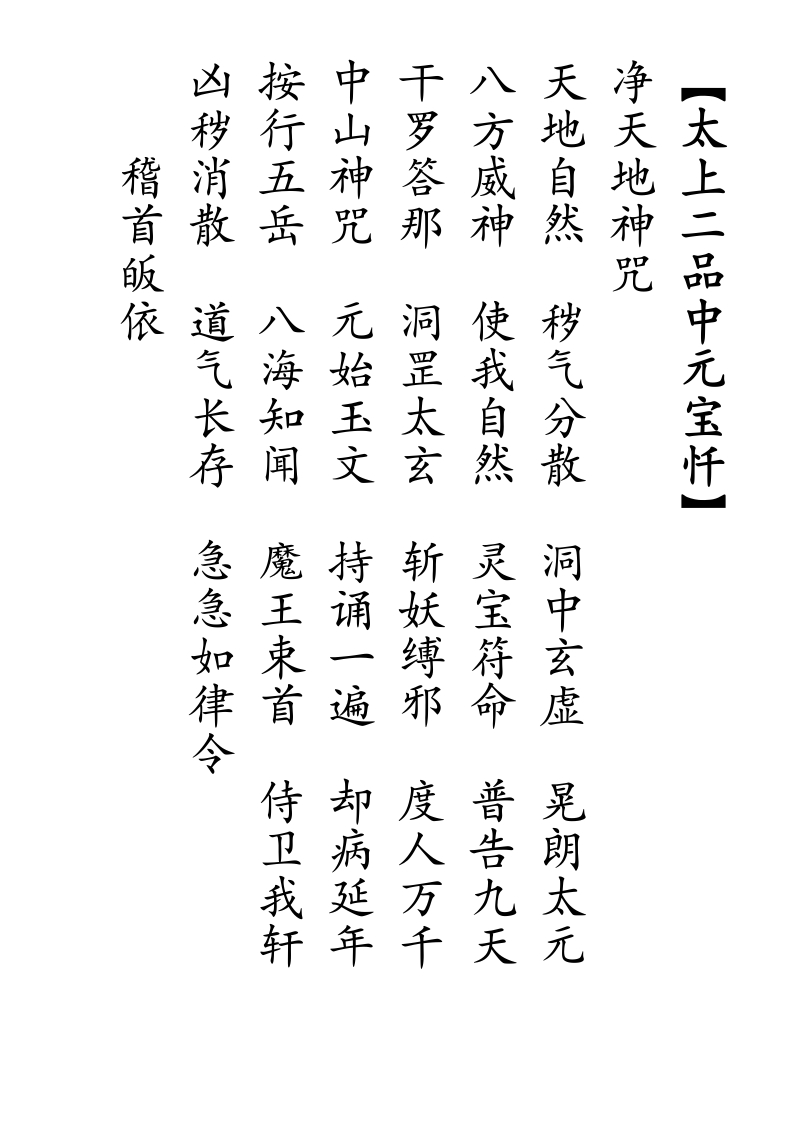 【太上二品中元宝忏】
净天地神咒
天地自然 秽气分散 洞中玄虚 晃朗太元
八方威神 使我自然 灵宝符命 普告九天
干罗答那 洞罡太玄 斩妖缚邪 度人万千
中山神咒 元始玉文 持诵一遍 却病延年
按行五岳 八海知闻 魔王束首 侍卫我轩
凶秽消散 道气长存 急急如律令
稽首皈依